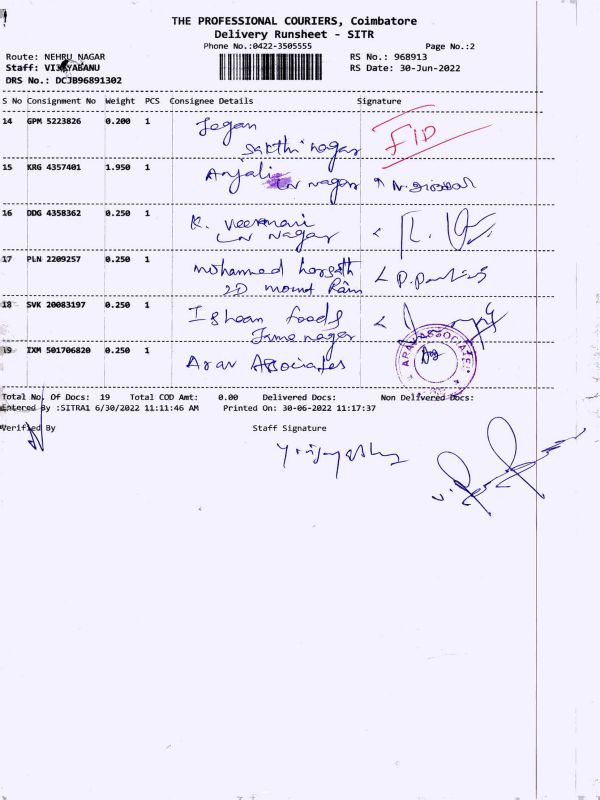 THE PROFESSIONAL COURIERS, Coimbatore
Delivery Runsheet - SITR
Phone No.:0422-3505555 Page No.:2
Route: NEHRU NAGAR RS No.: 968913
Staff: VIJAYABANU RS Date: 30-Jun-2022
DRS No.: DCJB96891302
S No Consignment No Weight PCS Consignee Details Signature
14 GPM 5223826 0.200 1 Jegan
Sakthi nagar
15 KRG 4357401 1.950 1 Anjali
LN nagar
16 DDG 4358362 0.250 1 K. Veeramani
LN Nagar
17 PLN 2209257 0.250 1 Mohammed
18 SVK 20083197 0.250 1 Ishean foods
nagar
19 IXM 501706820 0.250 1 Arav Associates
ARAV ASSOCIATES
Total No. Of Docs: 19 Total COD Amt: 0.00 Delivered Docs: Non Delivered Docs:
Entered By :SITRA1 6/30/2022 11:11:46 AM Printed On: 30-06-2022 11:17:37
Verified By Staff Signature